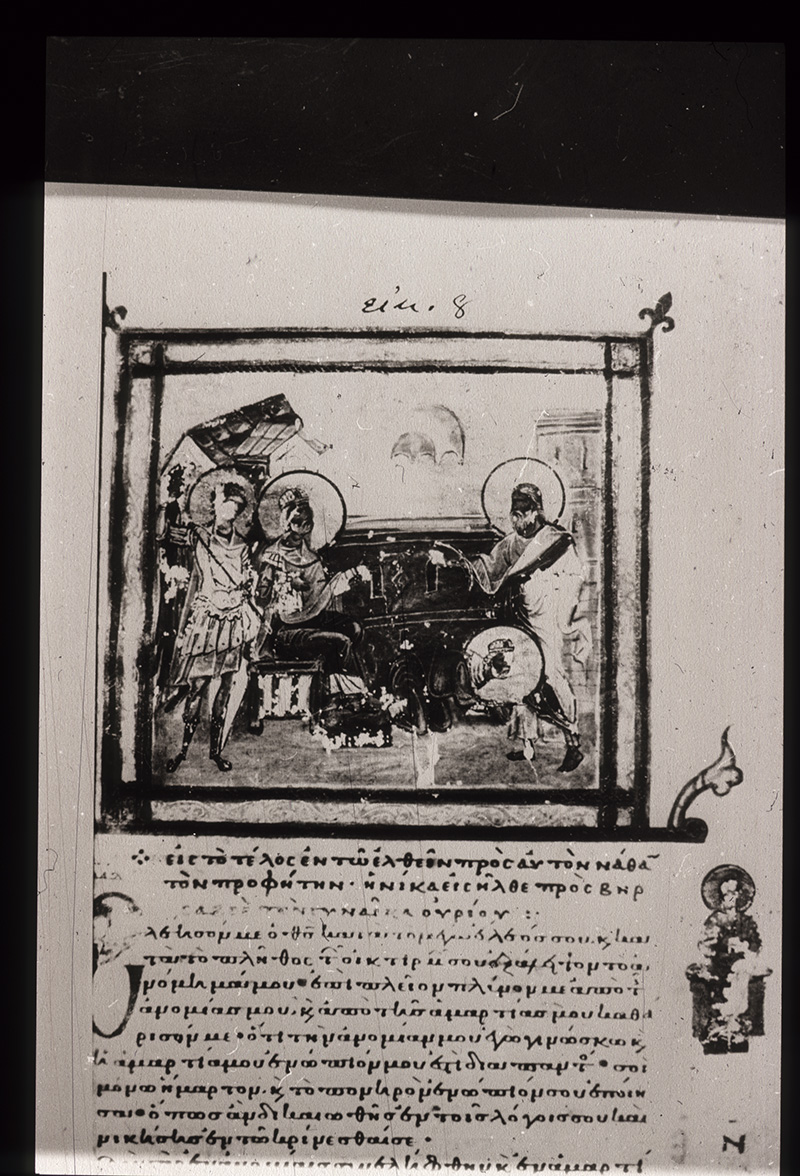 εἰκ. 8
εἰς τὸ τέλος ἐν τῶ ἐλθεῖν πρὸς αὐτὸν νάθα
τὸν προφήτην· ἡνίκα εἰσῆλθε πρὸς βηρ
τὴν γυναῖκα οὐρίου :
λέησόμ με ὁ θς κατα το μέγα ἔλεόσ σου. κ κατα
τὸ πλῆθος τ οἰκτιρμ σου ἐξάλειψομ το ἀ
νόμημά μου· ἐπὶ πλεῖομ πλῦμόμ με ἀπὸ τ
ἀνομίασ μου. κ ἀπὸ τῆσ ἁμαρτίασ μου καθα
ρισόμ με· ὅτι τὴμ ἀνομίαμ μου ἐγὼ γιμώσκω κ
ἡ ἁμαρτία μου ἐνώπιόμ μου ἐστὶ διαπαμτ· σοὶ
μόμω ἥμαρτομ. κ τὸ πομηρὸμ ἐμώπιόμ σου ἐποίη
σα· ὅπωσ ἀμ δικαιωθῆσ ἐμ τοῖσ λόγοισ σου και
μικήσησ ἐμ τῶ κρίμεσθαί σε·
Ζ